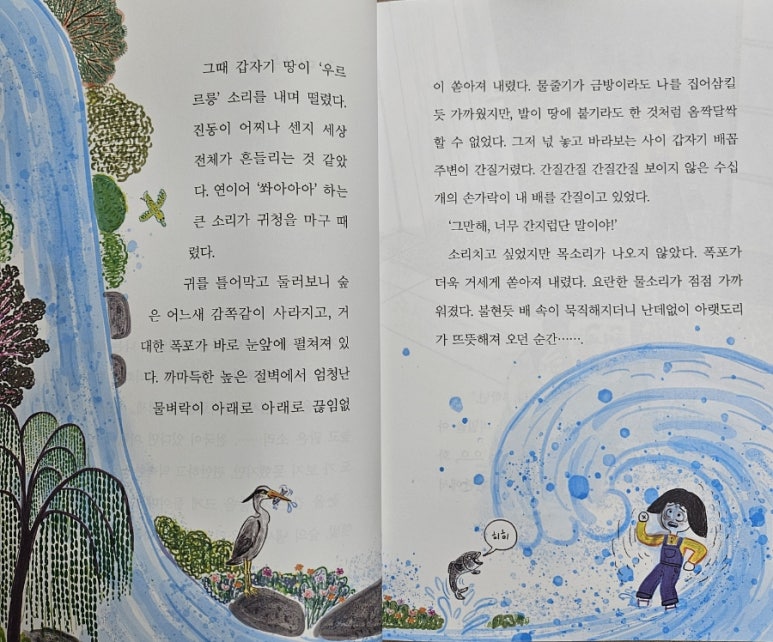 그때 갑자기 땅이 ‘우르
르릉’ 소리를 내며 떨렸다.
진동이 어찌나 센지 세상
전체가 흔들리는 것 같았
다. 연이어 ‘쏴아아아’ 하는
큰 소리가 귀청을 마구 때
렸다.
귀를 틀어막고 둘러보니 숲
은 어느새 감쪽같이 사라지고, 거
대한 폭포가 바로 눈앞에 펼쳐져 있
다. 까마득한 높은 절벽에서 엄청난
물벼락이 아래로 아래로 끊임없
이 쏟아져 내렸다. 물줄기가 금방이라도 나를 집어삼킬
듯 가까웠지만, 발이 땅에 붙기라도 한 것처럼 옴짝달싹
할 수 없었다. 그저 넋 놓고 바라보는 사이 갑자기 배꼽
주변이 간질거렸다. 간질간질 간질간질 보이지 않은 수십
개의 손가락이 내 배를 간질이고 있었다.
‘그만해, 너무 간지럽단 말이야!’
소리치고 싶었지만 목소리가 나오지 않았다. 폭포가
더욱 거세게 쏟아져 내렸다. 요란한 물소리가 점점 가까
워졌다. 불현듯 배 속이 묵직해지더니 난데없이 아랫도리
가 뜨뜻해져 오던 순간…….
히히